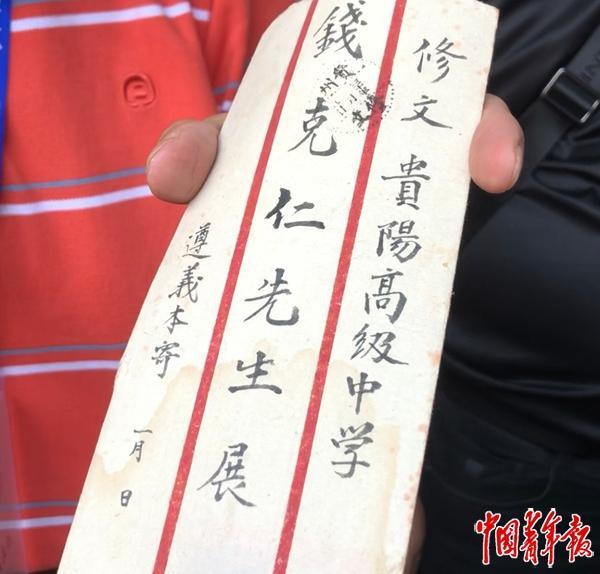 修文 貴陽高级中学
錢克仁先生展
遵義本寄
一月 日
中国青年报